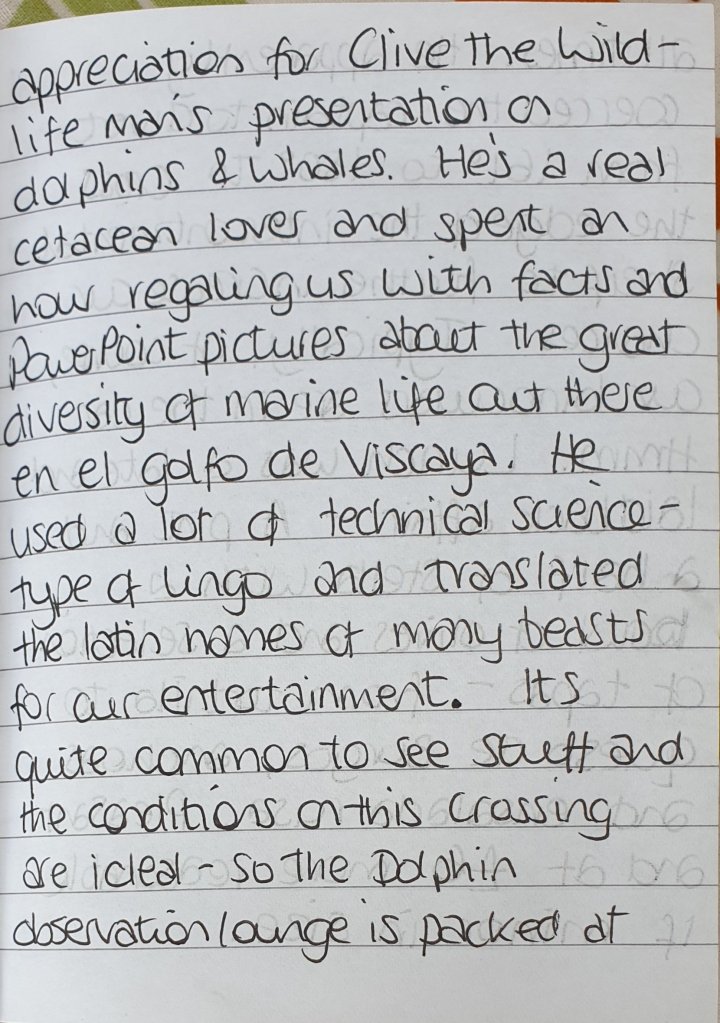 appreciation for Clive the Wild-
life man's presentation on
dolphins & whales. He's a real
cetacean lover and spent an
hour regaling us with facts and
PowerPoint pictures about the great
diversity of marine life out there
en el golfo de Viscaya. He
used a lot of technical science-
type of lingo and translated
the latin names of many beasts
for our entertainment. It's
quite common to see stuff and
the conditions on this crossing
are ideal - so the Dolphin
observation lounge is packed at